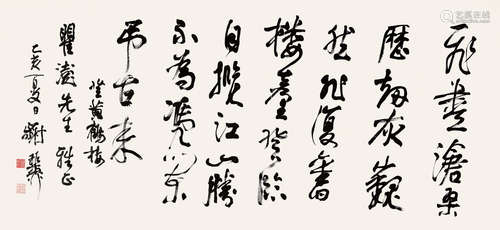 飛盡滄桑
歷劫灰巍
然非復舊
樓臺登臨
目攬江山勝
不為馮闌
弔古來
登黃鶴樓
瞿澍先生雅正
乙亥夏日謝